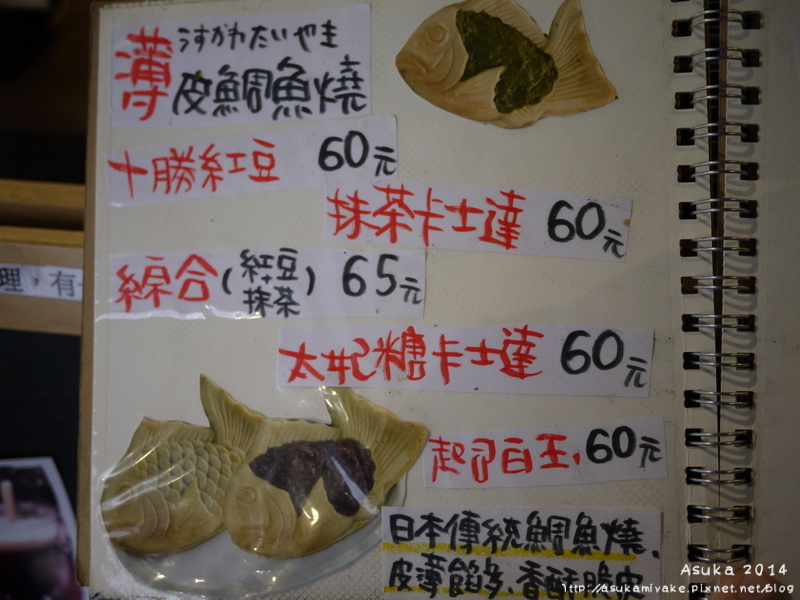 うすかわたいやき
薄皮鯛魚燒
十勝紅豆 60元
抹茶卡士達 60元
綜合(紅豆+抹茶) 65元
太妃糖卡士達 60元
起司白玉, 60元
日本傳統鯛魚燒,
皮薄餡多,香酥脆皮
理,有
Asuka 2014
http://asukamiyake.pixnet.net/blog